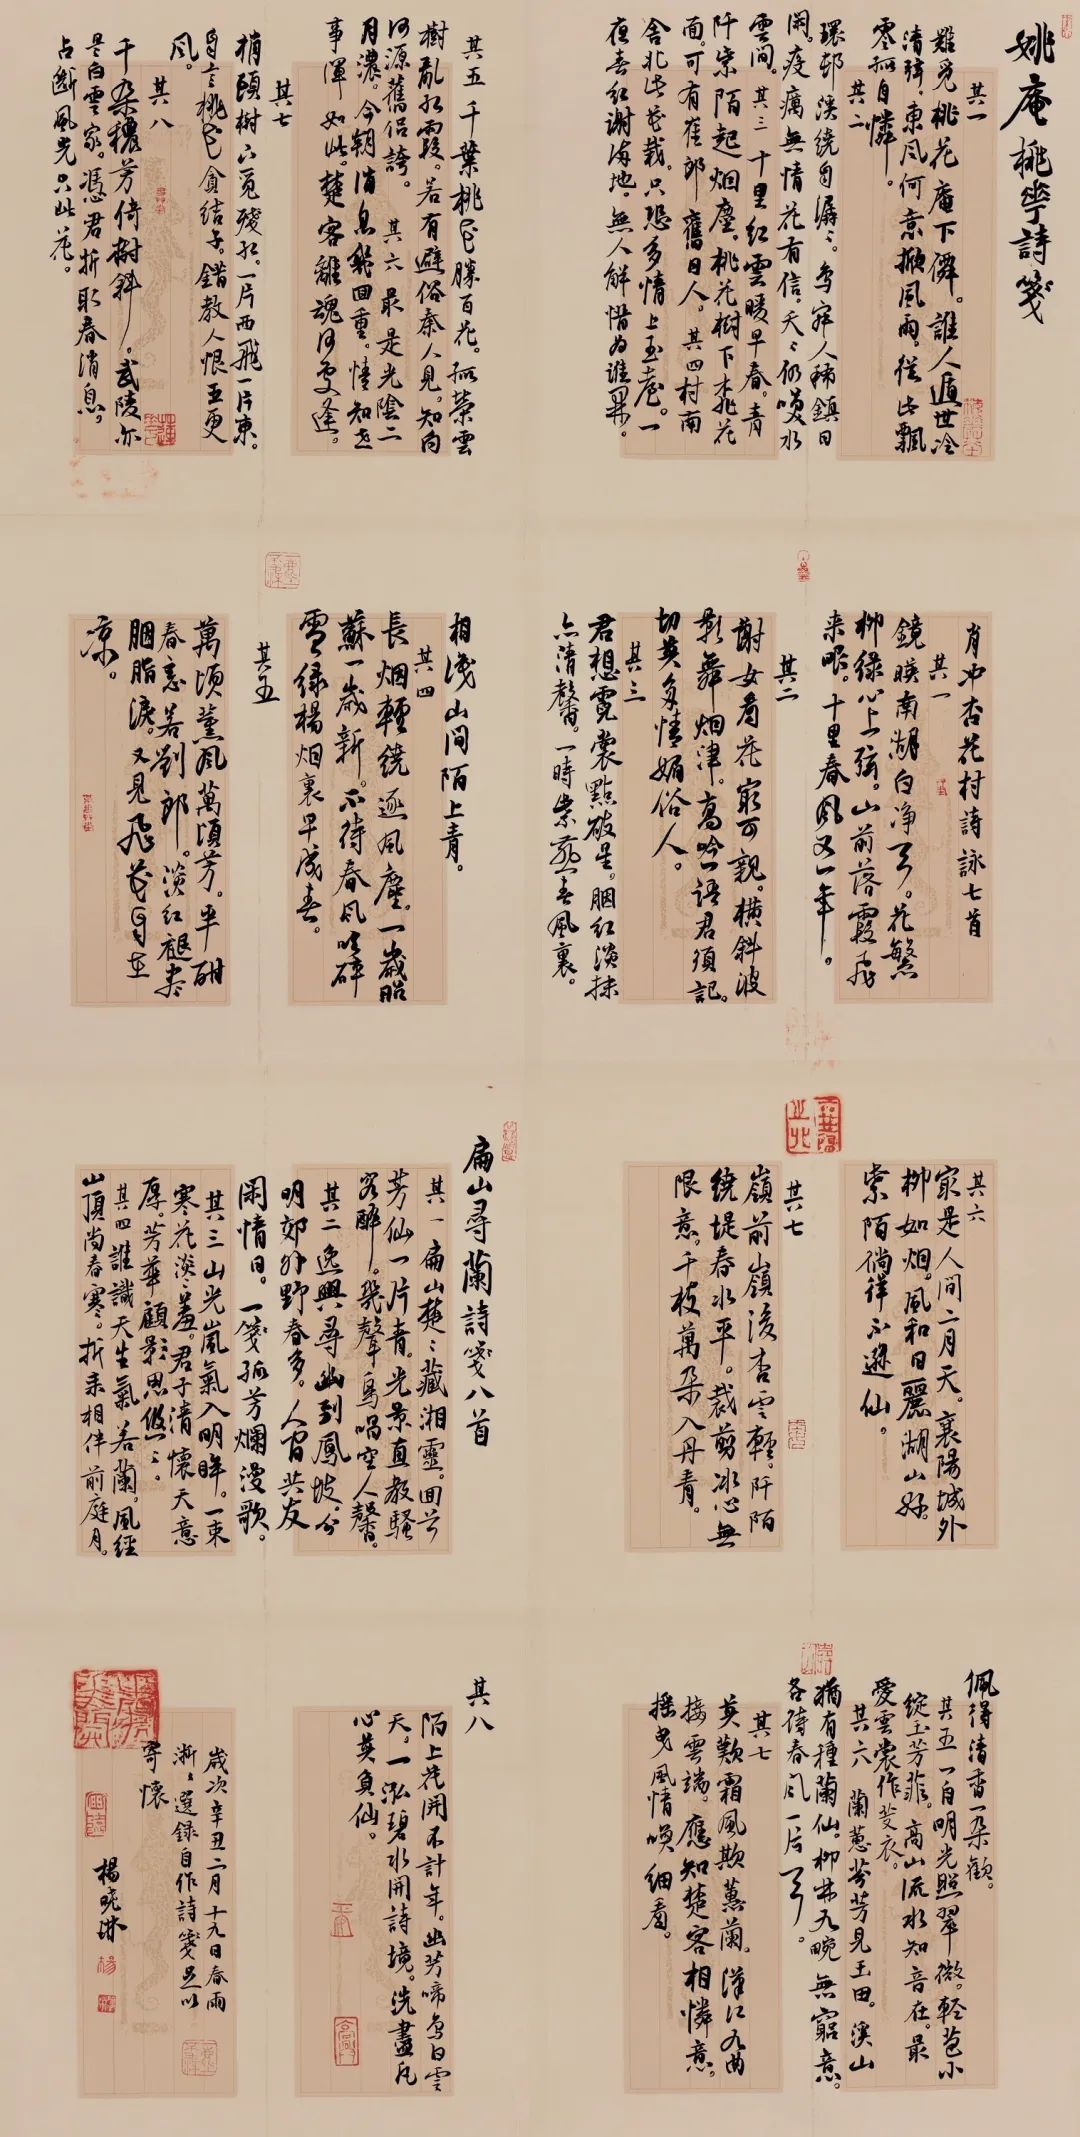 姚庵桃華詩箋
其一
難覓桃花庵下僊。誰人遁世冷
清籟。東風何意掀風雨。從此飄
零孤自憐。
其二
環邨溪繞自潺〻。鳥寂人稀鎮日
閑。疫癘無情花有信。夭〻仍喚水
雲間。其三 十里紅雲暖早春。青
阡紫陌起烟塵。桃花樹下桃花
面。可有崔郎舊日人。其四 村南
舍北此花栽。只恐多情上玉臺。一
夜春紅謝海地。無人解惜為誰開。
其五 千葉桃花勝百花。孤榮雲
樹亂紅霞。若有避俗秦人見。知向
河源舊侶誇。其六 最是光陰二
月濃。今朝消息幾回重。情知世
事渾如此。楚客離魂何處逢。
其七
梢頭樹下覓殘紅。一片西飛一片東。
自言桃花貪結子。錯教人恨五更
風。
其八
千朶穠芳倚樹斜。武陵亦
是白雲家。馮君折取春消息。
占斷風光只此花。
肖冲杏花村詩詠七首
其一
鏡暎南湖白净天。花繁
柳綠心上弦。山前落霞飛
來眼。十里春風又一年。
其二
謝女看花寂可親。橫斜波
影舞烟津。高吟一語君須記。
切莫負情媚俗人。
其三
君想霓裳點破星。胭紅淡抹
亦清馨。一時紫燕春風裏。
相淺山间陌上青。
其四
長烟輕繞逐風塵。一歲昭
蘇一歲新。不待春风吹碎
雪。綠楊烟裏早成春。
其五
萬頃薰風萬頃芳。半酣
春意若劉郎。淡紅褪盡
胭脂淚。又見飛花自在
凉。
其六
寂是人间二月天。襄陽城外
柳如烟。風和日麗湖山好。
紫陌徜徉不遜仙。
其七
嶺前嶺後杏雲輕。阡陌
繞堤春水平。裁剪冰心無
限意。千枝萬朶入丹青。
扁山尋蘭詩箋八首
其一 扁山楚〻藏湘靈。回兮
芳仙一片青。光景直教騷
客醉。幾聲鳥唱空人馨。
其二 逸興尋幽到鳳坡。兮
明郊外野春多。人間共友
閑情日。一箋孤芳爛漫歌。
其三 山光嵐氣入明眸。一束
寒花淡〻羞。君子清懷天意
厚。芳華顧影思悠〻。
其四 誰識天生氣若蘭。風經
山頂尚春寒。折來相伴前庭月。
佩得清香一朶歡。
其五 一自明光照翠微。輕苞小
綻玉芳菲。高山流水知音在。最
愛雲裳作芰衣。
其六 蘭蕙芬芳見玉田。溪山
猶有種蘭仙。柳林九畹無窮意。
各待春风一片天。
其七
莫歎霜風欺蕙蘭。漢江九曲
接雲端。應知楚客相憐意。
搖曳風情喚細看。
其八
陌上花開不計年。幽芳啼鳥白雲
天。一泓碧水開詩境。洗盡凡
心莫負仙。
歲次辛丑二月十九日春雨
淅〻選錄自作詩箋是以
寄懷
楊曉琳